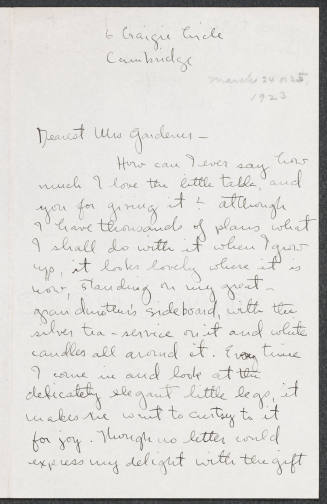 6 Craigie Circle
Cambridge
March 24 or 25
1923
Dearest Mrs Gardener –
How can I ever say how
much I love the little table, and
you for giving it – although
I have thousands of plans what
I shall do with it when I grow
up, it looks lovely where it is
now, standing on my great-
grandmother's sideboard, with the
silver tea-service on it and white
candles all around it. Every time
I come in and look at the
delicately elegant little legs, it
makes me want to curtsy to it
for joy. Though no letter could
express my delight with the gift